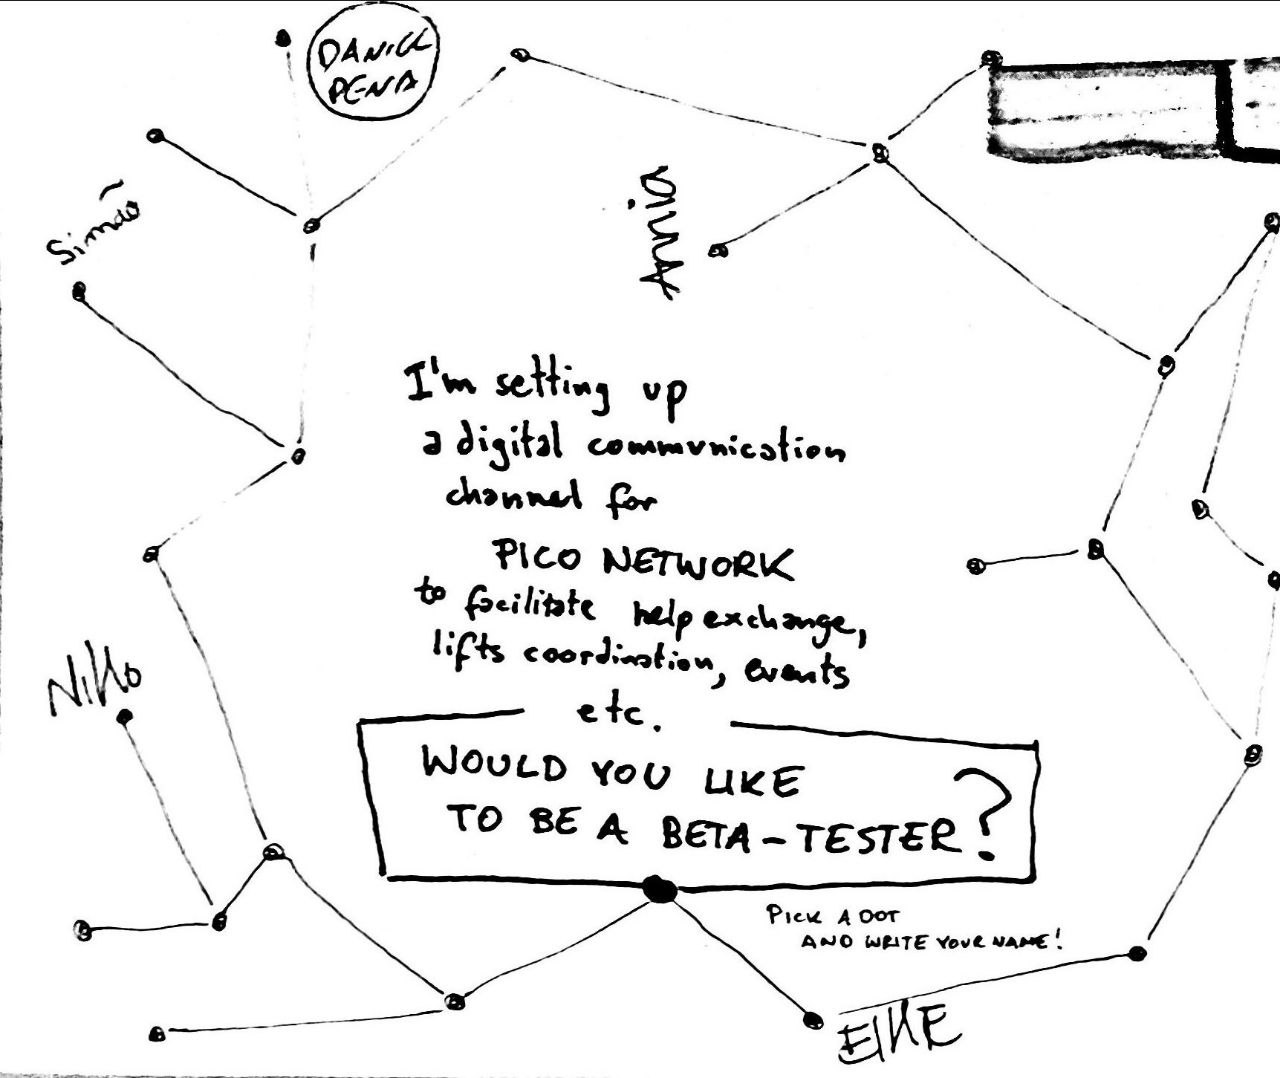 DANIEL
PENA
Simão
Annia
I'm setting up
a digital communication
channel for
PICO NETWORK
to facilitate help exchange,
lifts coordination, events
etc.
WOULD YOU LIKE
TO BE A BETA-TESTER?
PICK A DOT
AND WRITE YOUR NAME!